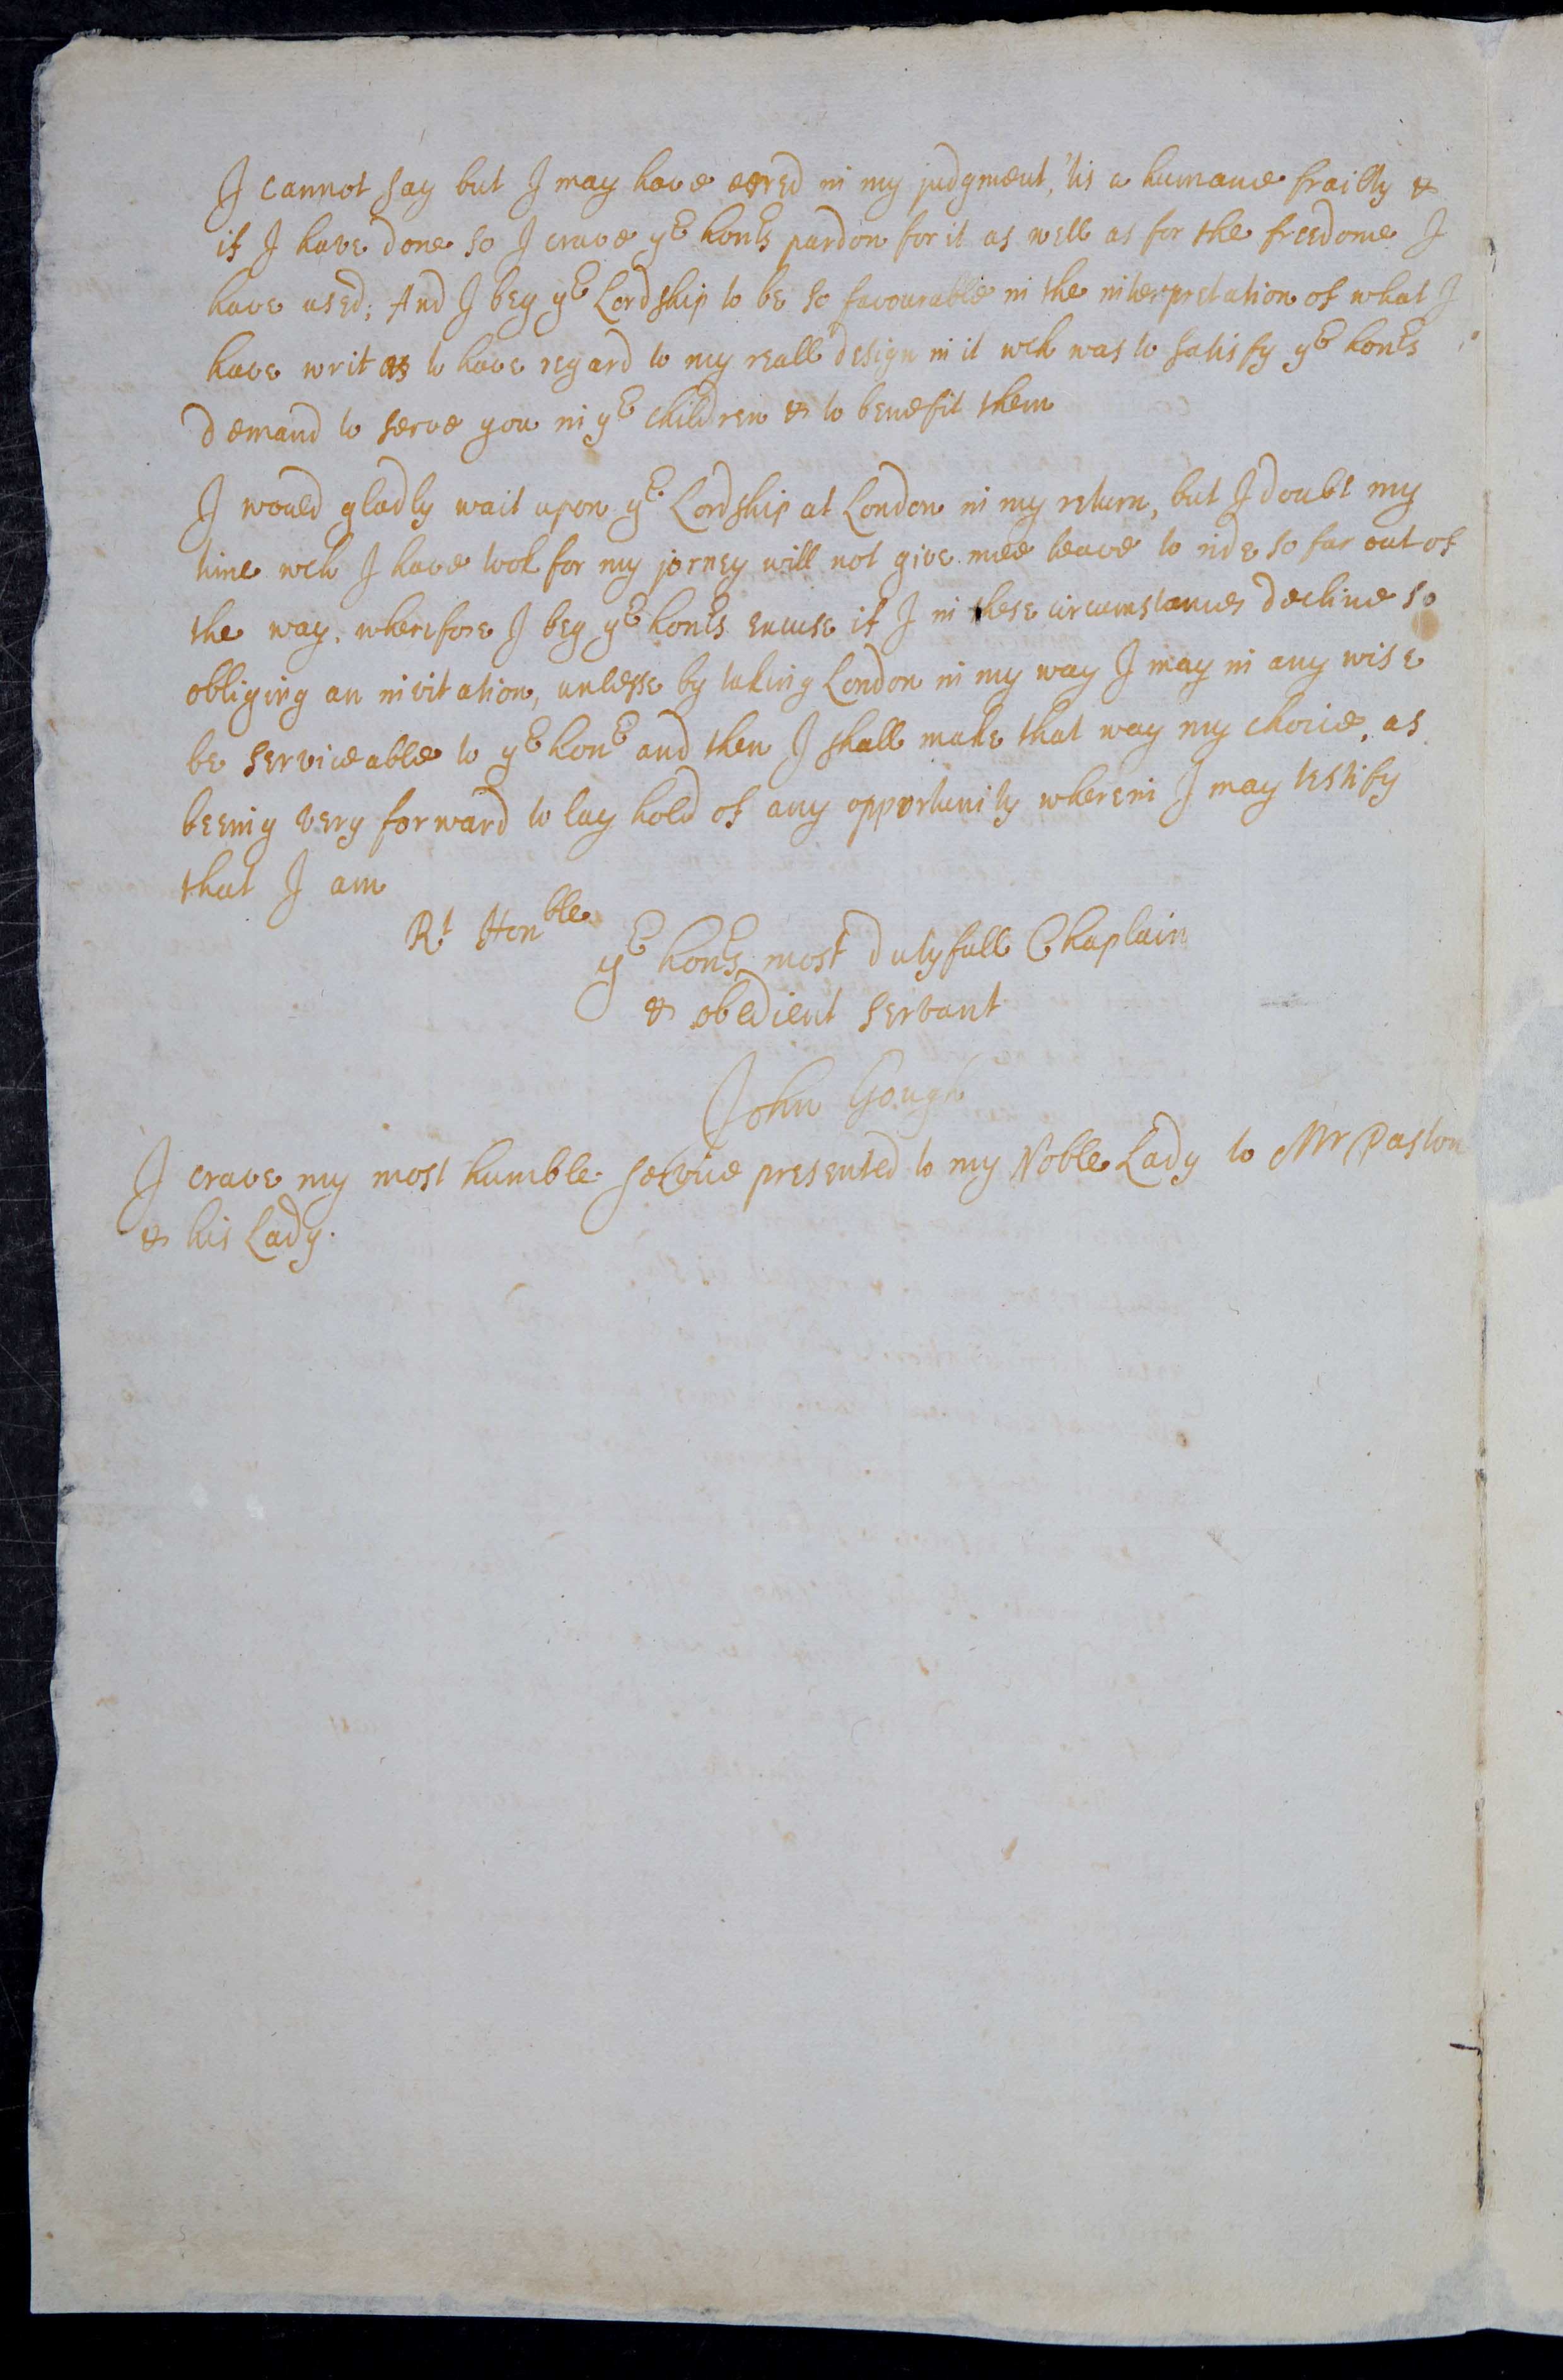 I cannot say but I may have erred in my judgment, 'tis a humane frailty &
if I have done so I crave yr honrs pardon for it as well as for the freedome I
have used; And I beg yr Lordship to be so favourable in the interpretation of what I
have writ as to have regard to my reall design in it wch was to satisfy yr honrs
demand to serve you in yr children & to benefit them
I would gladly wait upon yr Lordship at London in my return, but I doubt my
time wch I have took for my jorney will not give mee leave to ride so far out of
the way, wherefore I beg yr honrs excuse if I in these circumstances decline so
obliging an invitation, unlesse by taking London in my way I may in any wise
be serviceable to yr honr and then I shall make that way my choice, as
beeing very forward to lay hold of any opportunity wherein I may testify
that I am
Rt Honble
yr honrs most dutyfull Chaplain
& obedient servant
John Gough
I crave my most humble service presented to my Noble Lady to Mr Paston
& his Lady.